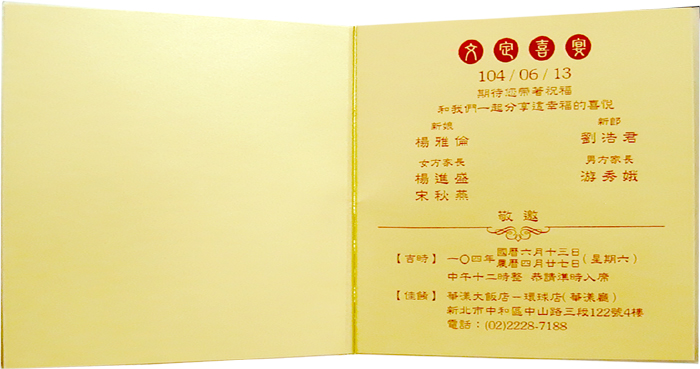 文定喜宴
104/06/13
期待您帶著祝福
和我們一起分享這幸福的喜悅
新娘 新郎
楊雅倫 劉浩君
女方家長 男方家長
楊進盛 游秀娥
宋秋燕
敬邀
【吉時】一〇四年 國曆六月十三日 農曆四月廿七日 (星期六)
中午十二時整 恭請準時入席
【佳餚】華漾大飯店－環球店(華漾廳)
新北市中和區中山路三段122號4樓
電話：(02)2228-7188